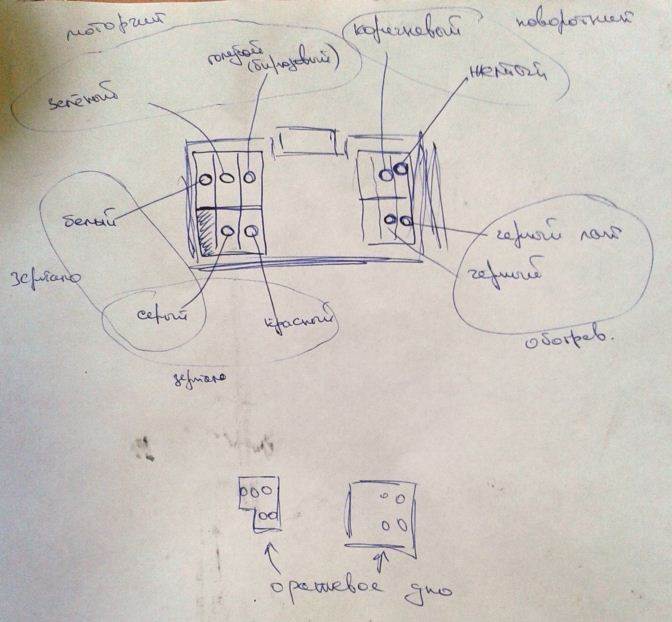 моторчик
поворотник
коричневый
голубой
(бирюзовый)
желтый
зелёный
белый
черный лапт
черный
зеркало
серый
красный
обогрев.
зеркало
оражевое дно